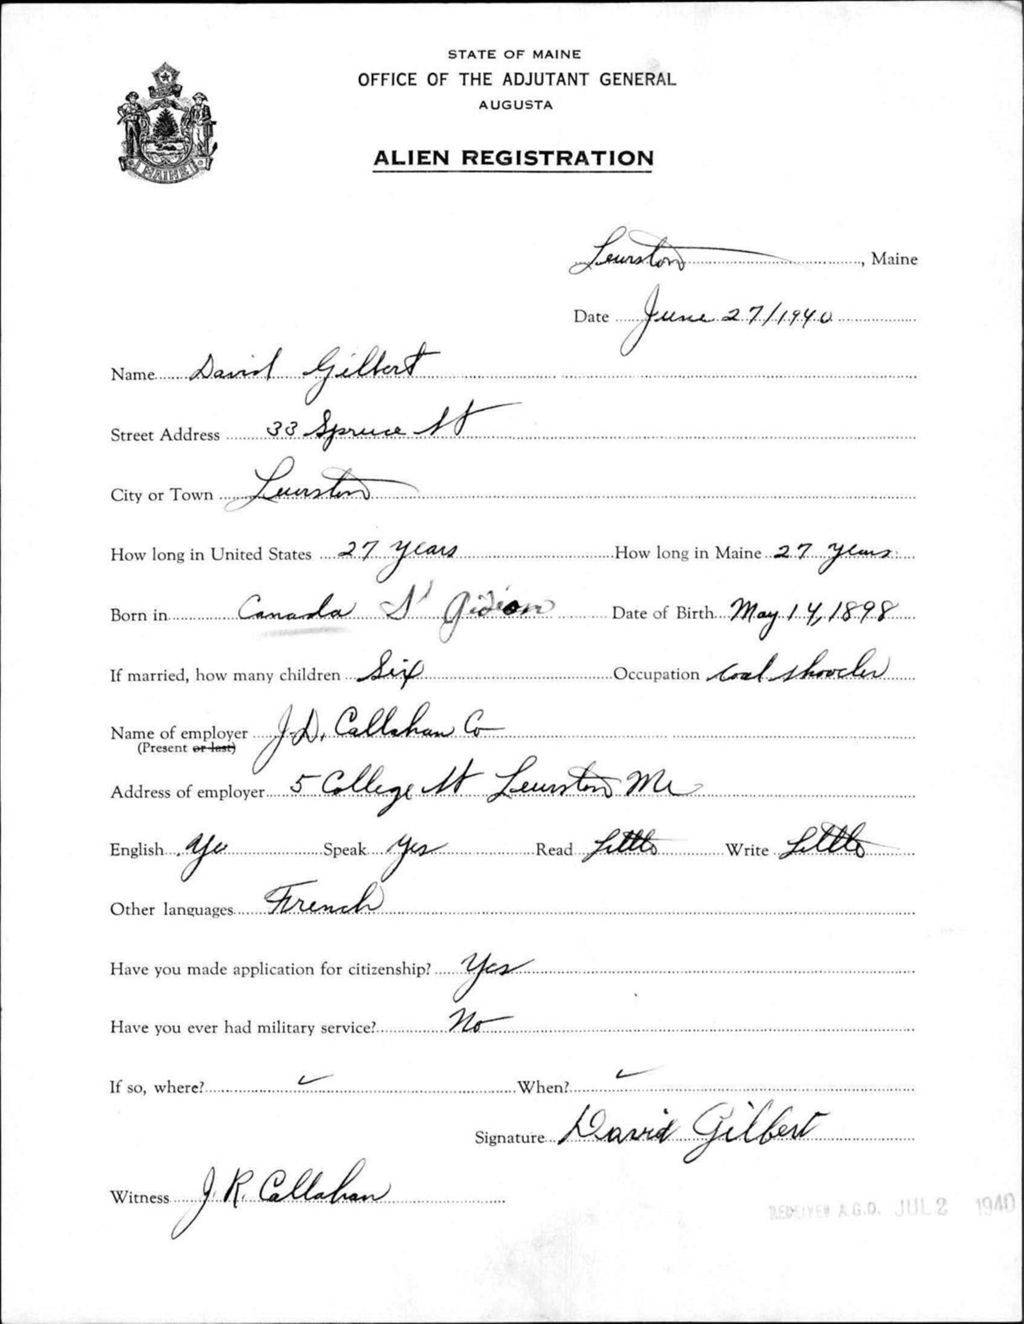 STATE OF MAINE
OFFICE OF THE ADJUTANT GENERAL
AUGUSTA
ALIEN REGISTRATION
MAINE
Lewiston, Maine
Date June 27/1940
Name David Gilbert
Street Address 33 Spruce St
City or Town Lewiston
How long in United States 27 years How long in Maine 27 years
Born in Canada St Gideon Date of Birth May 14, 1898
If married, how many children Six Occupation Coal shoveler
Name of employer J. D. Callahan Co
(Present or last)
Address of employer 5 College St Lewiston Me
English Yes Speak Yes Read Little Write Little
Other languages French
Have you made application for citizenship? Yes
Have you ever had military service? No
If so, where? When?
Signature David Gilbert
Witness J. R. Callahan
RECEIVED A.G.O. JUL 2 1940